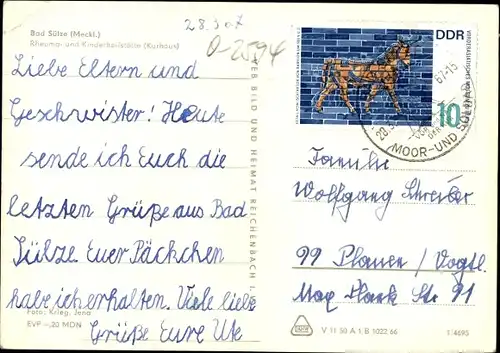 28. 3. 67
0-2594
Bad Sülze (Meckl.)
Rheuma- und Kinderheilstätte (Kurhaus)
Liebe Eltern und
Geschwister! Heute
sende ich Euch die
letzten Grüße aus Bad
Sülze. Euer Päckchen
habe ich erhalten. Viele liebe
Grüße Eure Ute
Foto: Krieg, Jena
EVP -,20 MDN
VEB BILD UND HEIMAT REICHENBACH I. V.
DDR
10
VORDERASIATISCHES MUSEUM
67-15
MOOR- UND SOLBAD
Familie
Wolfgang Schreiber
99 Plauen / Vogtl.
Max Planck Str 91
V 11 50 A 1, B 1022, 66
1/4693